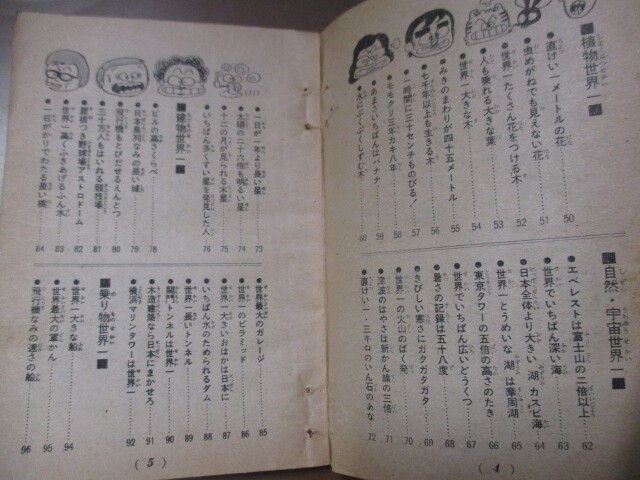 ■植物世界一■
●直けい一メートルの花 50
●虫めがねでも見えない花 51
●世界一たくさん花をつける木 52
●人も乗れる大きな葉 53
●世界一大きな木 54
●みきのまわりが四十五メートル 55
●七千年以上も生きる木 56
●一時間に三十センチものびる! 57
●モモクリ三年カキ八年 58
●あまさいちばんはバナナ 59
●水にぶくぶくしずむ木 60
■自然・宇宙世界一■
●エベレストは富士山の二倍以上 62
●世界でいちばん深い海 63
●日本全体より大きい湖 カスピ海 64
●世界一とうめいな湖は摩周湖 65
●東京タワーの五倍の高さのたき 66
●世界でいちばん広いどうくつ 67
●暑さの記録は五十八度 68
●きびしい寒さにガタガタガタ 69
●世界一の火山のばく発 70
●流波のはやさは新かん線の三倍 71
●直けい一・三キロのいん石のあな 72
(4)
●一日が一年より長い星 73
●太陽の二十六倍も明るい星 74
●十二の月が見られる木星 75
●いちばん多くすい星を発見した人 76
■建物世界一■
●ビルの高さくらべ 78
●日本列島なみの長い城 79
●飛行機もとびだせるえんとつ 80
●二十万人もはいれる競技場 81
●屋根つき野球場アストロドーム 82
●世界一高くふきあげるふん水 83
●一日がかりでわたる長い橋 84
●世界最大のガレージ 85
●世界一のピラミッド 86
●世界一大きいおはかは日本に 87
●いちばん水のためられるダム 88
●世界一長いトンネル 89
●関門トンネルは世界一 90
●木造建築なら日本にまかせろ 91
●横浜マリンタワーは世界一 92
■乗り物世界一■
●世界一大きな船 94
●世界最大の軍かん 95
●飛行機なみの速さの船 96
(5)